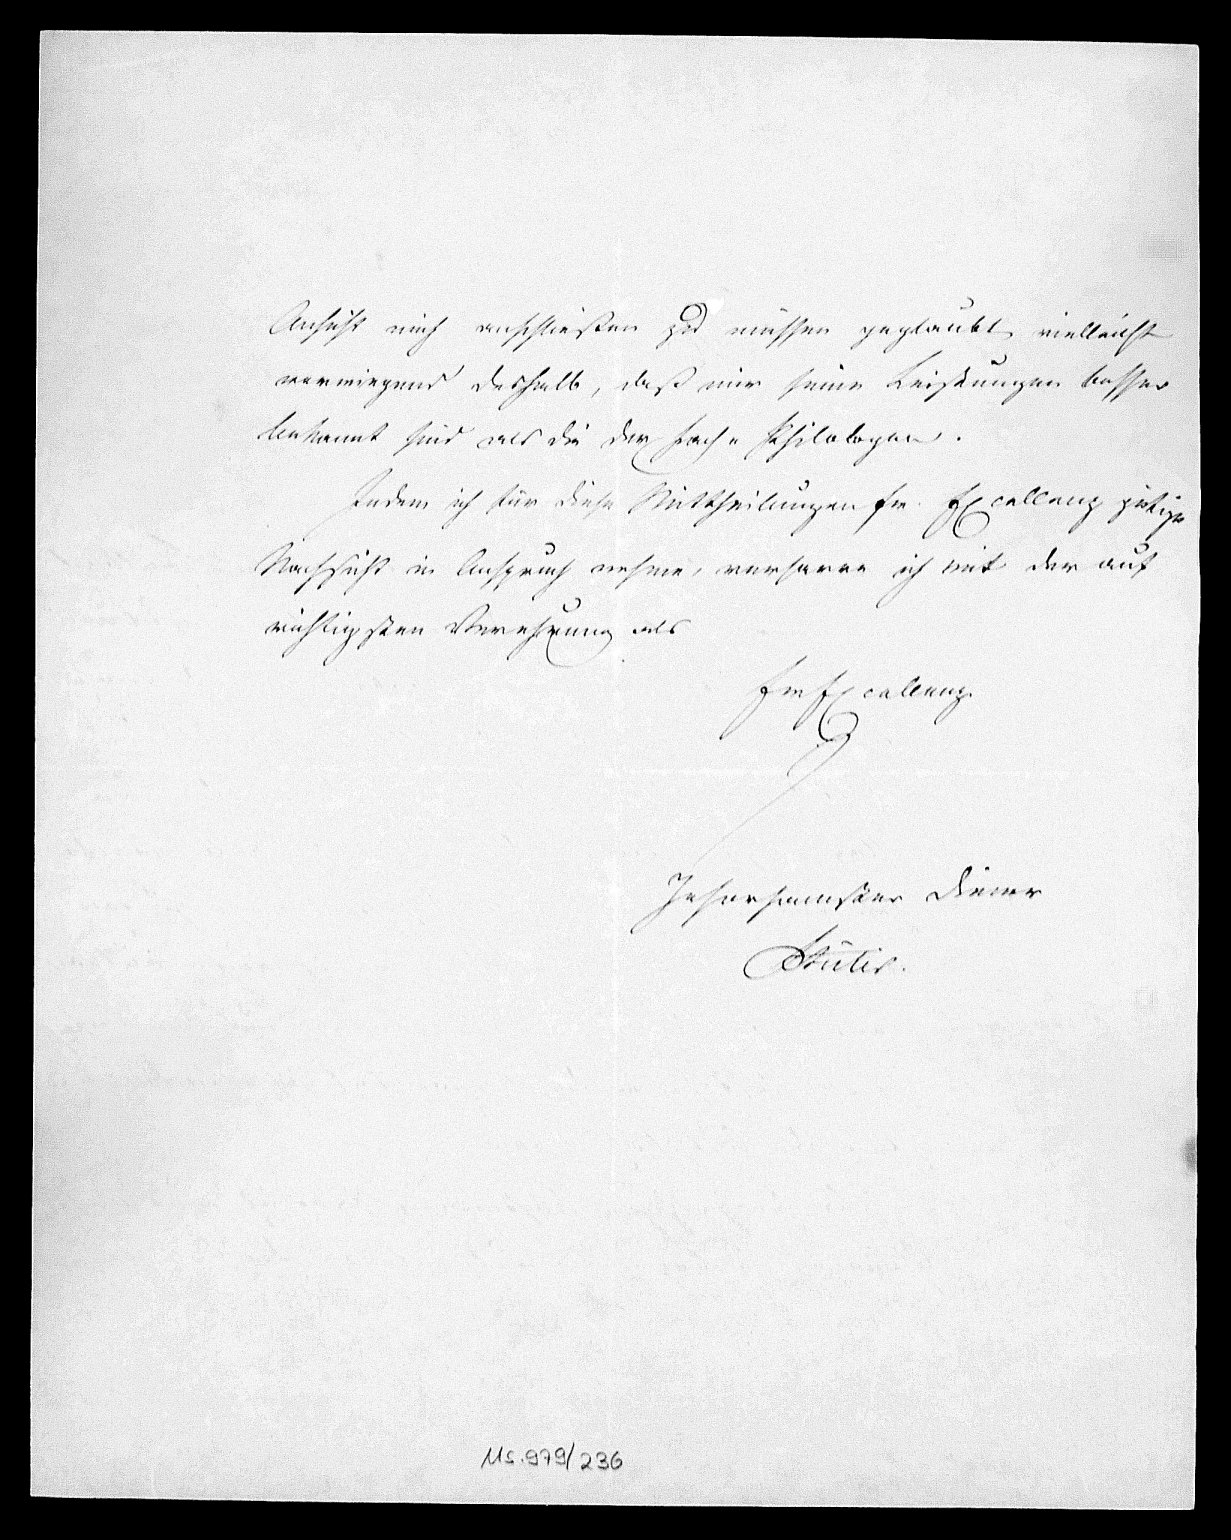 Ansicht mich anschließen zu müssen geglaubt, vielleicht
vorwiegend deshalb, daß mir seine Leistungen besser
bekannt sind als die der Fach Philologen.
Indem ich für diese Mittheilungen Ew. Excellenz gütige
Nachsicht in Anspruch nehme, verharre ich mit der auf
richtigsten Verehrung als
Ew Excellenz
Gehorsamster Diener
Stüler.
Ms. 979/236